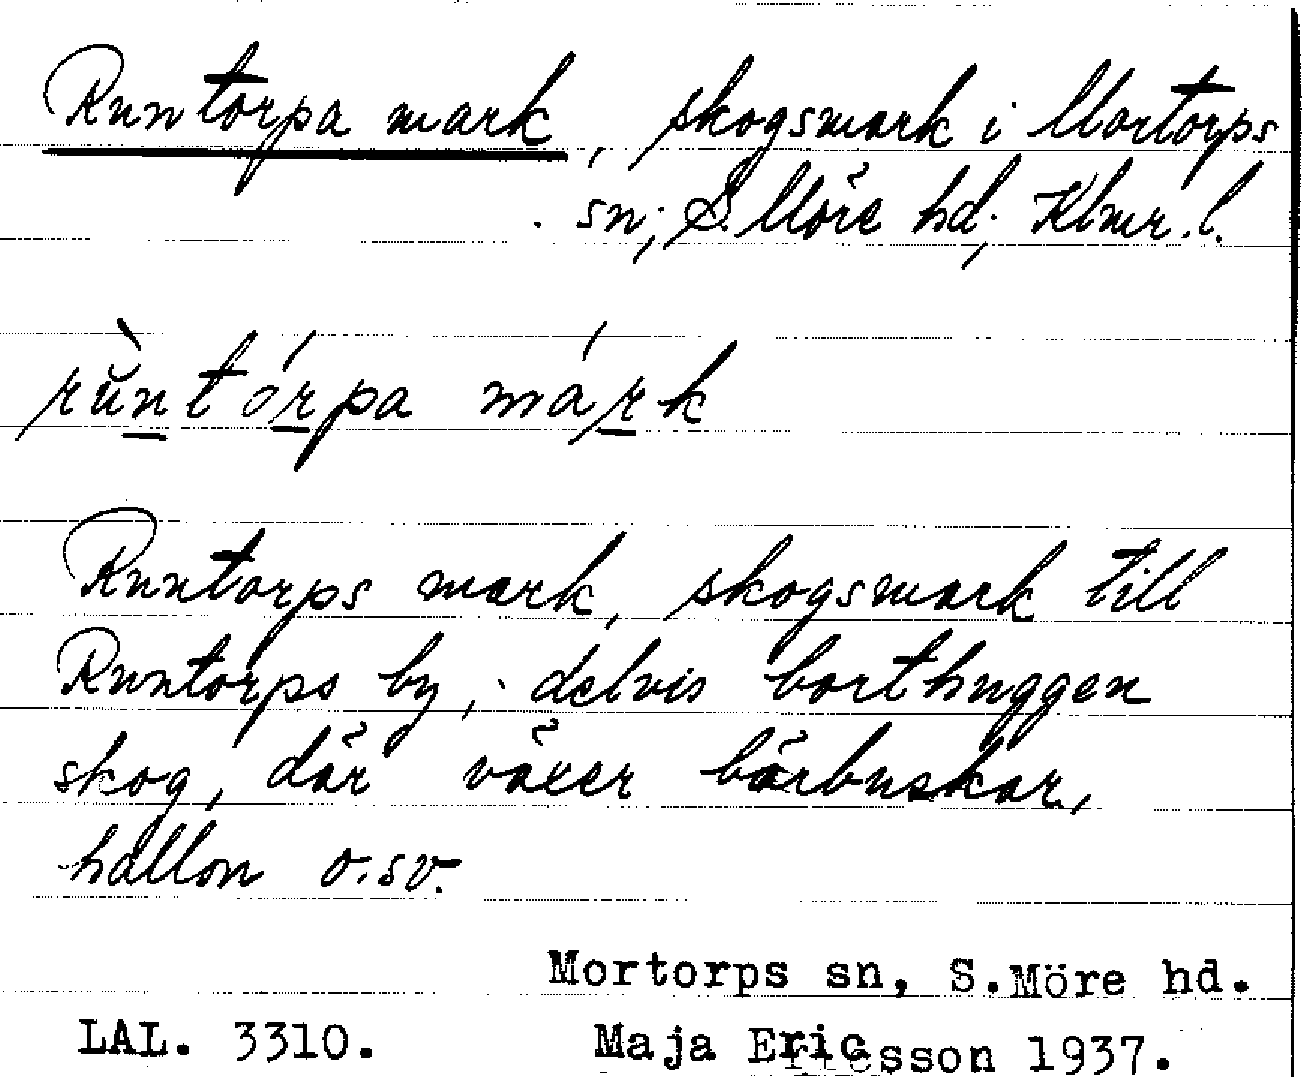 Runtorpa mark, skogsmark i Mortorps
sn; S. Möre hd; Klmr. l.
rŭ̀ntórpa márk
Runtorps mark, skogsmark till
Runtorps by, delvis borthuggen
skog, där växer bärbuskar,
hallon o.sv.
Mortorps sn, S.Möre hd.
LAL. 3310. Maja Ericsson 1937.